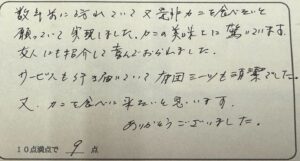 数年前に訪れていて又是非カニを食べたいと
願っていて実現しました。カニの美味しさに驚いています。
友人にも紹介して喜んでおられました。
サービスも行き届いていて布団シーツも清潔でした。
又、カニを食べに来たいと思います。
ありがとうございました。
10点満点で 9 点